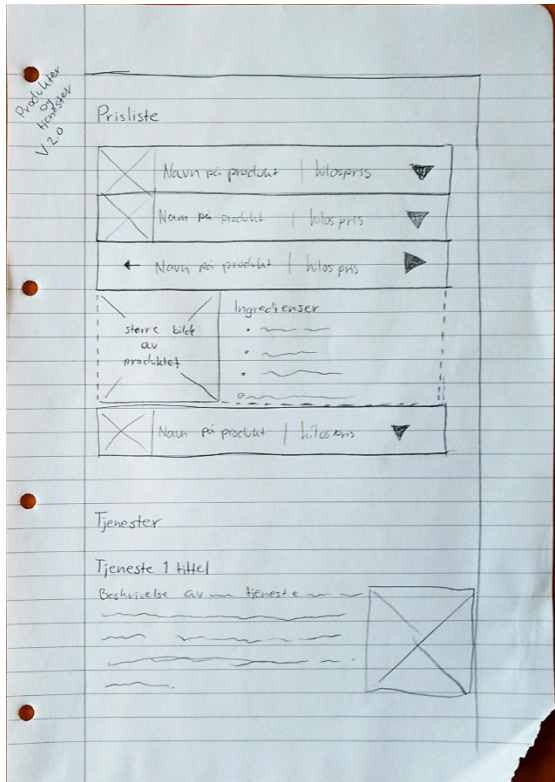 Produkter
og
tjenester
V 2.0
Prisliste
Navn på produkt | kilospris
Navn på produkt | kilospris
Navn på produkt | kilospris
større bilde
av
produktet
Ingredienser
Navn på produkt | kilospris
Tjenester
Tjeneste 1 tittel
Beskrivelse av tjeneste